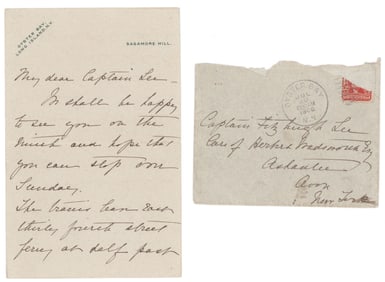 OYSTER BAY,
LONG ISLAND, N.Y.
SAGAMORE HILL.
My dear Captain Lee –
We shall be happy
to see you on the
ninth and hope that
you can stop over
Sunday.
The trains leave East
thirty fourth street
ferry at half past
OYSTER BAY
N.Y.
Captain Fitzhugh Lee
Care of Herbert Wadsworth Esq
Ashantee
Avon
New York